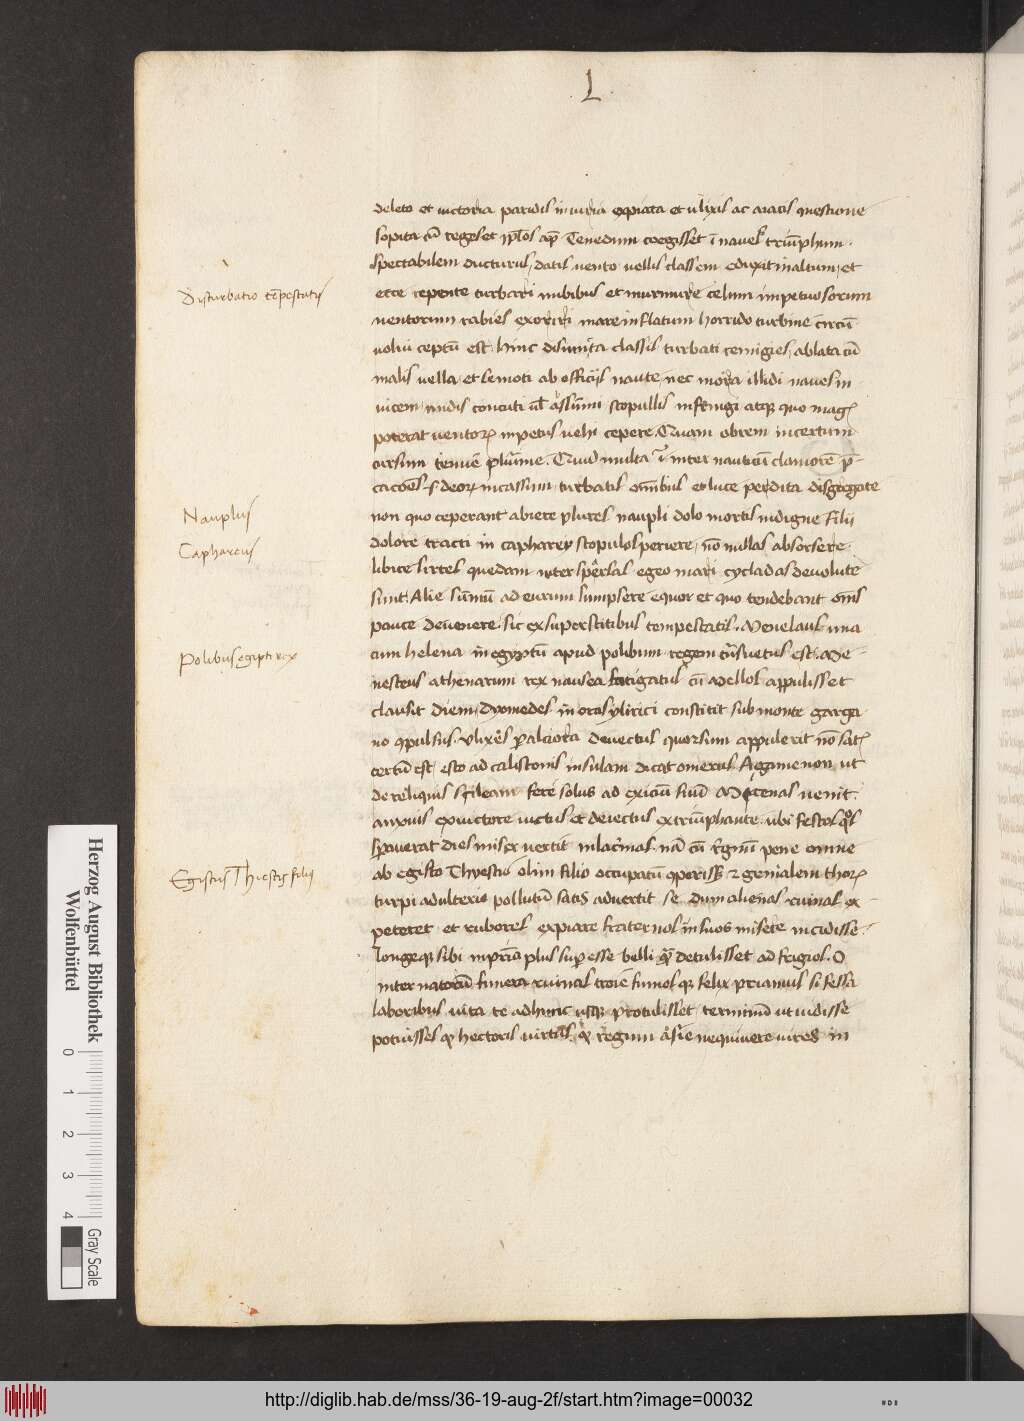 L
deleto et victoria paridis iniuria expiata et ulixis ac aiacis questione
sopita cũ reges et ip̃los apđ Tenedum coegisset ĩ naueʃ triũphum
spectabilem ducturus, datis vento vellis classem eduxit in altum, et
ecce repente turbari nubibus et murmure celum impetuosorum
Disturbatio tẽpestatis
ventorum rabies exoriri mare inflatum horrido turbine circũ
volui ceptũ est. hinc disiuncta classis turbati remiges, ablata cũ
malis vella, et semoti ab officijs naute, nec mora illidi naues in
vicem nudis concuti ul assũmi scopullis infringi atq quo mag
poterat ventoꝝ impetus vehi cepere. Quam obrem incertum
cursum tenuẽ plurime. Quid multa inter nauticũ clamorẽ p̃
cacões deoꝝ incassum turbatis omĩbus et luce perdita disgregate
Nauplus
non quo ceperant abiere plures naupli dolo mortis indigne filii
Caphareus
dolore tracti in capharey scopulos periere, nõ nullas absorsere
libice sirtes quedam intersperse egeo mari cycladas deuolute
sunt. Alie sũmũ ad eurum sumpsere equor et quo tendebant om̃s
pauce deuenere. sic ex superstitibus tempestatis. Menelaus una
Polibus egipti rex
cum helena in egyptũ apud polibum regem trãsuetus est. Me
nesteus athenarum rex nausea fatigatus cũ ad ellos appulisset
clausit diem, dyomedes in oras ylirici constitit sub monte garga
no qpulsus. Ulixes p̱ alciora deuectus quorsum appulerit nõ sat
certũ est, esto ad calistonis insulam dicat omerus Agamenon ut
de reliquis sileam fere solus ad exiciũ suũ Micenas venit.
anxius ex victore victus et deiectus ex triũphante. ubi festos qͦs
sp̱auerat dies miser vertit in lacrimas. nã cũ regnũ pene omne
Egistus Thiestis filius
ab egisto Thyestis olim filio occupatũ qperisset genialem thoꝝ
turpi adulterio pollutũ satis aduertit se dum alienas ruinas ex
peteret et rubores expiare fraternos in suos misere incidisse.
longeq sibi in patria plus sup̱ esse belli qͣ detulisset ad frigios. O
inter natorũ funera ruinas troie fumos q felix priamus si fessa
laboribus vita te adhunc usq protulisset terminũ ut vidisse
potuisses q hectoris virtus, q regum asie nequiuere vires in
Herzog August Bibliothek
Wolfenbüttel
0 1 2 3 4
Gray Scale
http://diglib.hab.de/mss/36-19-aug-2f/start.htm?image=00032